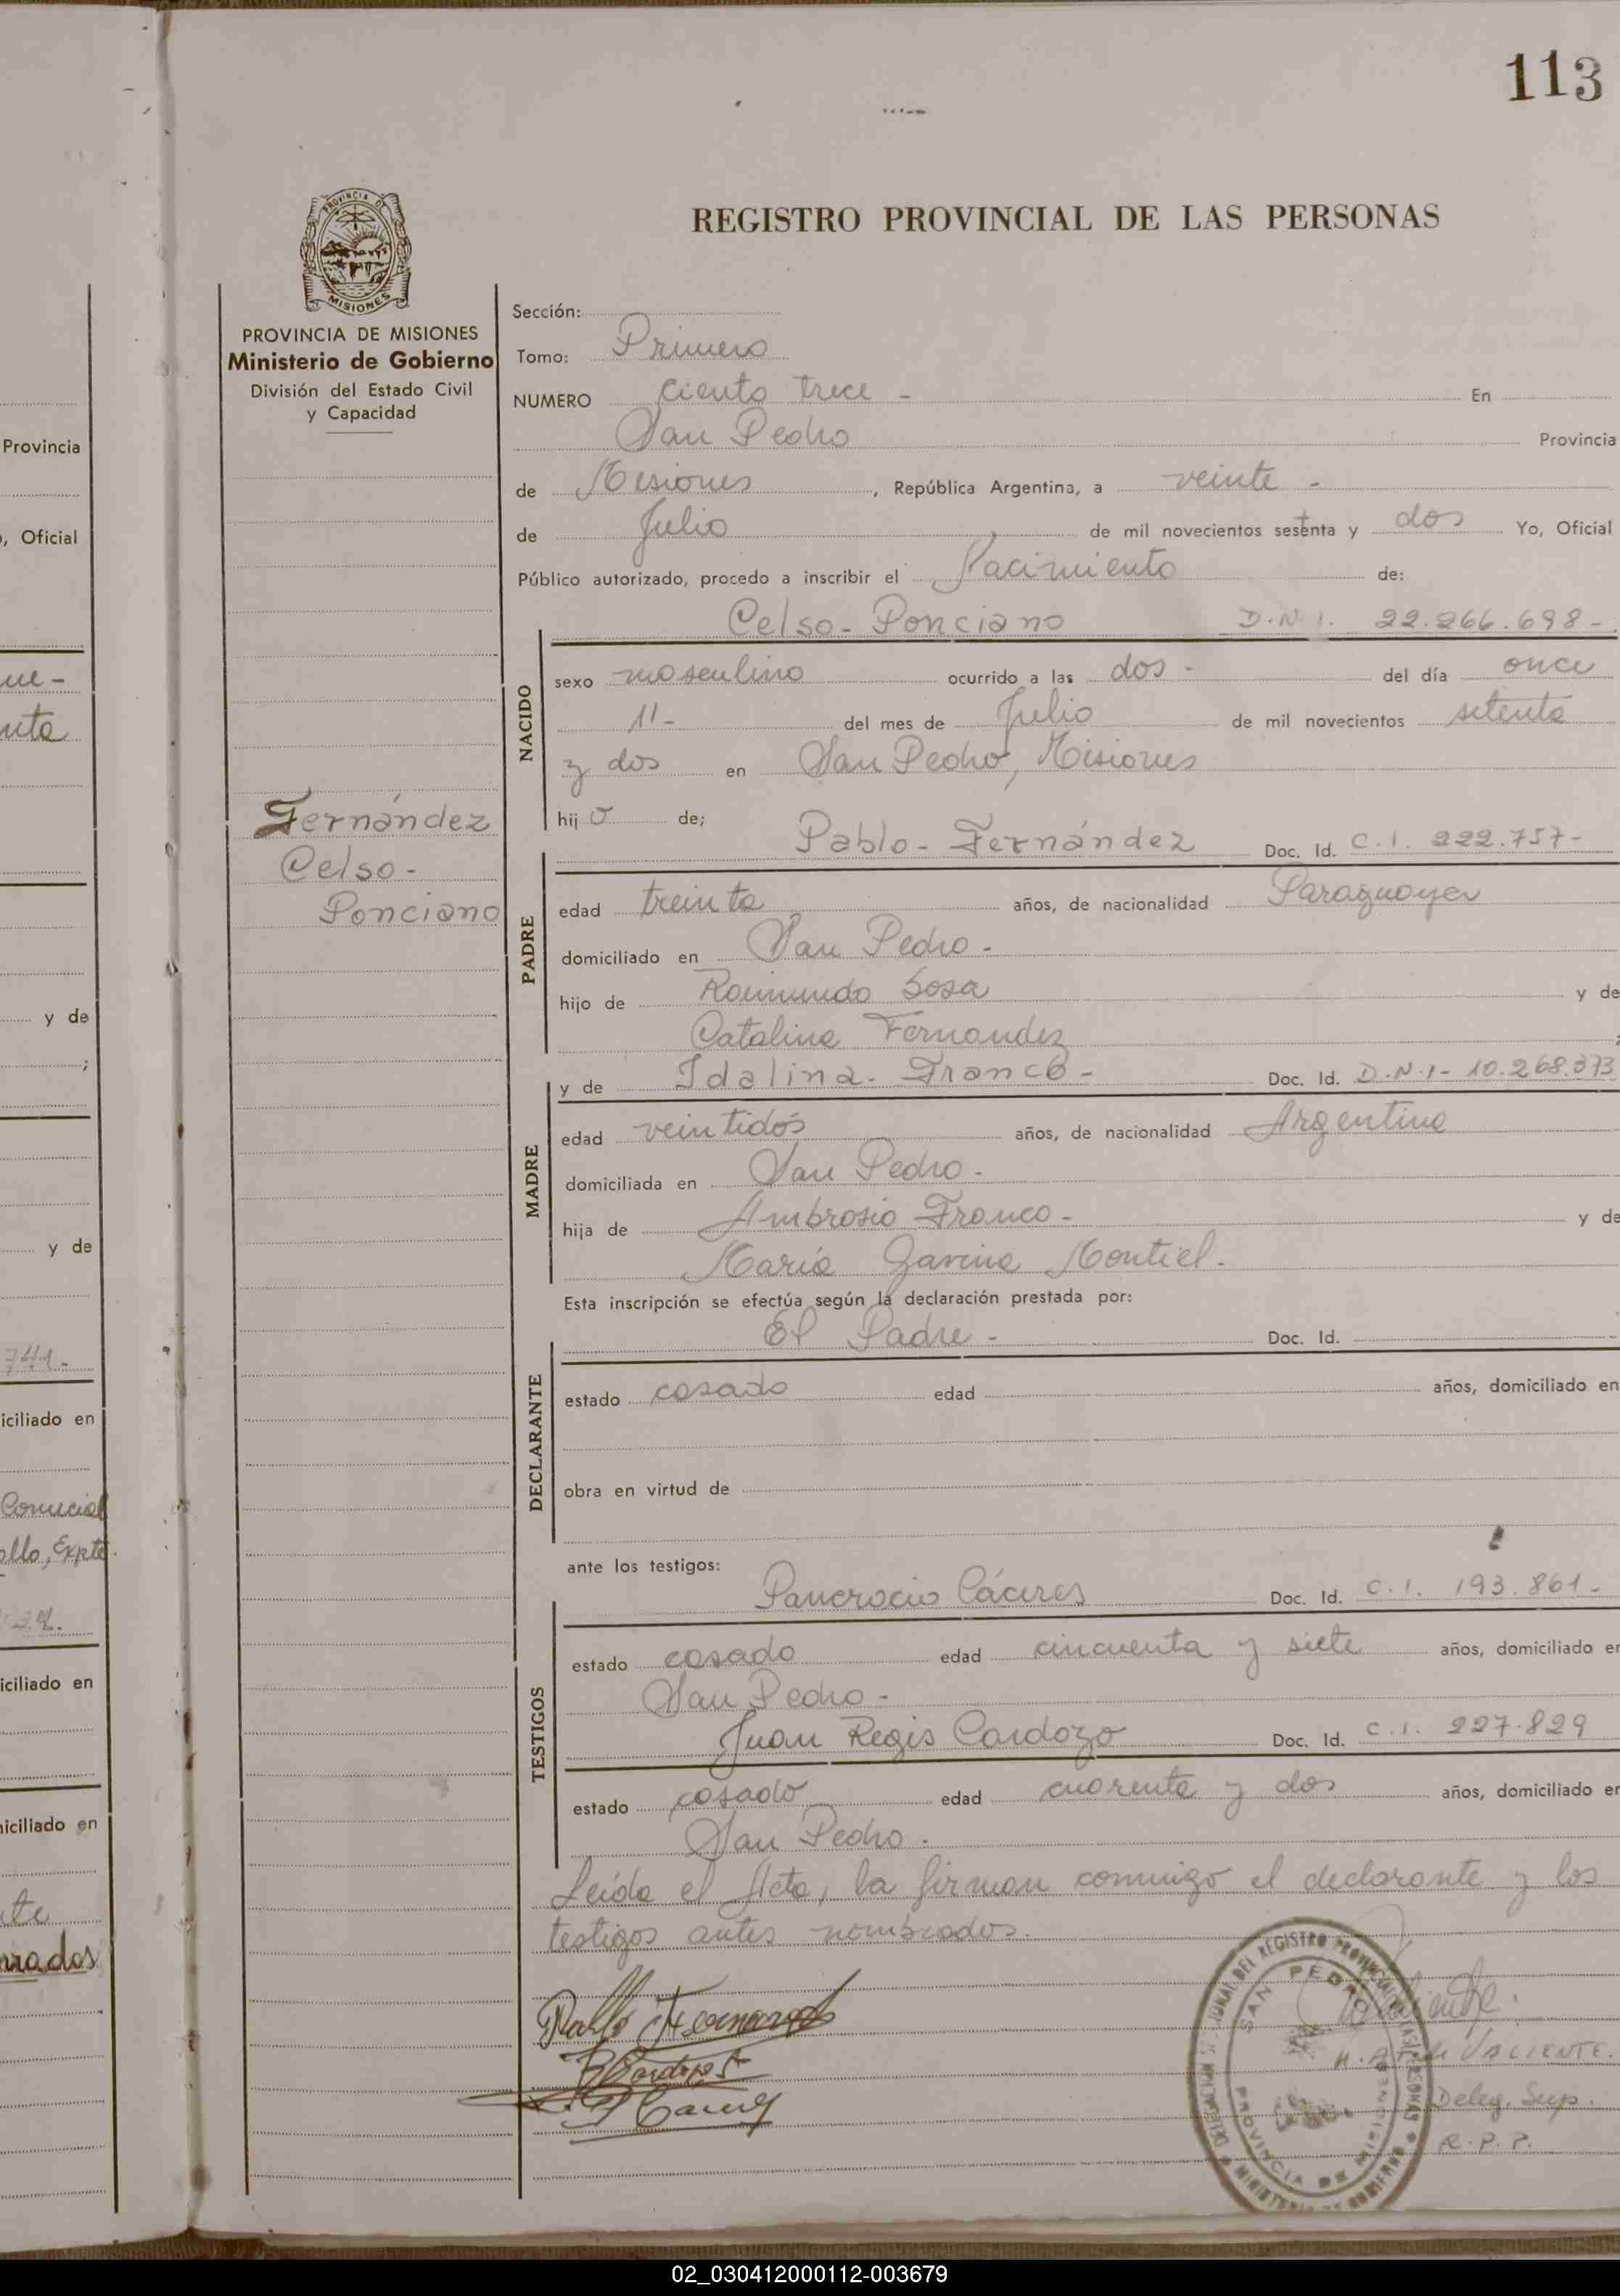 113
REGISTRO PROVINCIAL DE LAS PERSONAS
PROVINCIA DE
MISIONES
PROVINCIA DE MISIONES
Ministerio de Gobierno
División del Estado Civil
y Capacidad
Fernández
Celso-
Ponciano
Sección:
Tomo: Primero
NUMERO ciento trece - En
San Pedro Provincia
de Misiones, República Argentina, a veinte -
de Julio de mil novecientos sesenta y dos Yo, Oficial
Público autorizado, procedo a inscribir el Nacimiento de:
Celso- Ponciano D.N.I. 22.266.698-
NACIDO
sexo masculino ocurrido a las dos - del día once
11- del mes de Julio de mil novecientos setenta
y dos en San Pedro, Misiones
hijo de;
Pablo- Fernández Doc. Id. C.I. 222.757-
PADRE
edad treinta años, de nacionalidad Paraguaya
domiciliado en San Pedro -
hijo de Raimundo Sosa y de
Catalina Fernandez ;
y de Idalina- Franco- Doc. Id. D.N.I- 10.268.373
MADRE
edad veintidós años, de nacionalidad Argentina
domiciliada en San Pedro -
hija de Ambrosio Franco - y de
María Gavina Montiel.
Esta inscripción se efectúa según la declaración prestada por:
El Padre - Doc. Id.
DECLARANTE
estado casado edad años, domiciliado en
obra en virtud de
ante los testigos:
Pancracio Cáceres Doc. Id. C.I. 193.861-
TESTIGOS
estado casado edad cincuenta y siete años, domiciliado en
San Pedro -
Juan Regis Cardozo Doc. Id. C.I. 227.829
estado casado edad cuarenta y dos años, domiciliado en
San Pedro.
Leída el Acta, la firman conmigo el declarante y los
testigos antes nombrados.
Pablo Fernandez
SAN PEDRO
PROVINCIA DE MISIONES
VALIENTE.
Deleg. Sup.
R.P.P.
Provincia
, Oficial
y de
;
y de
741.-
iciliado en
Comercial
Expte.
iciliado en
iciliado en
02_030412000112-003679